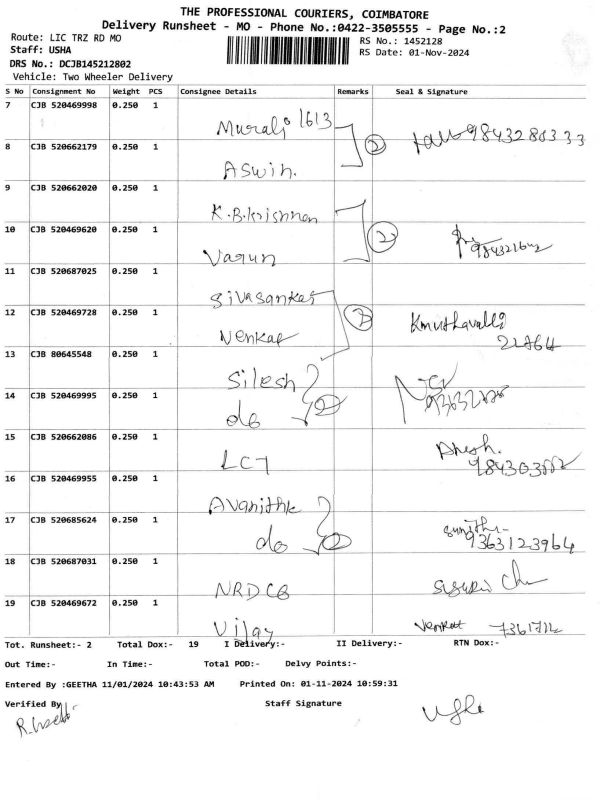 THE PROFESSIONAL COURIERS, COIMBATORE
Delivery Runsheet - MO - Phone No.:0422-3505555 - Page No.:2
Route: LIC TRZ RD MO
RS No.: 1452128
Staff: USHA
RS Date: 01-Nov-2024
DRS No.: DCJB145212802
Vehicle: Two Wheeler Delivery
S No Consignment No Weight PCS Consignee Details Remarks Seal & Signature
7 CJB 520469998 0.250 1 Murali 1613
8 CJB 520662179 0.250 1 Aswin. 2 9843280333
9 CJB 520662020 0.250 1 K.B.Krishnan
10 CJB 520469620 0.250 1 Varun 2
11 CJB 520687025 0.250 1 Sivasankar
12 CJB 520469728 0.250 1 Venkat Kmuthavalli
13 CJB 80645548 0.250 1 Silesh
14 CJB 520469995 0.250 1 do 2
15 CJB 520662086 0.250 1
16 CJB 520469955 0.250 1
17 CJB 520685624 0.250 1 do 2 9363123964
18 CJB 520687031 0.250 1
19 CJB 520469672 0.250 1 Vijay Venkat
Tot. Runsheet:- 2 Total Dox:- 19 I Delivery:- II Delivery:- RTN Dox:-
Out Time:- In Time:- Total POD:- Delvy Points:-
Entered By :GEETHA 11/01/2024 10:43:53 AM Printed On: 01-11-2024 10:59:31
Verified By Staff Signature